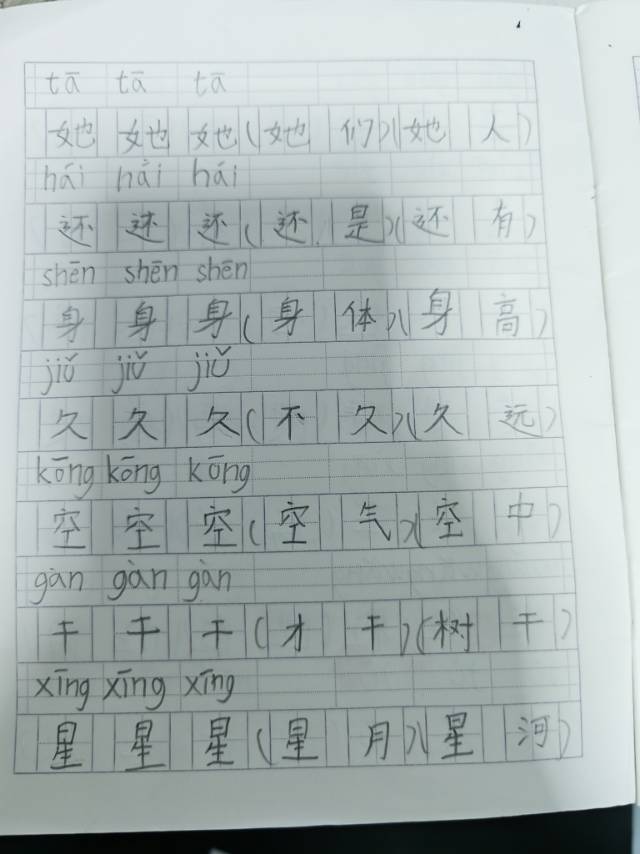 tā tā tā
她 她 她(她 们)(她 人)
hái hái hái
还 还 还(还 是)(还 有)
shēn shēn shēn
身 身 身(身 体)(身 高)
jiǔ jiǔ jiǔ
久 久 久(不 久)(久 远)
kōng kōng kōng
空 空 空(空 气)(空 中)
gàn gàn gàn
干 干 干(才 干)(树 干)
xīng xīng xīng
星 星 星(星 月)(星 河)